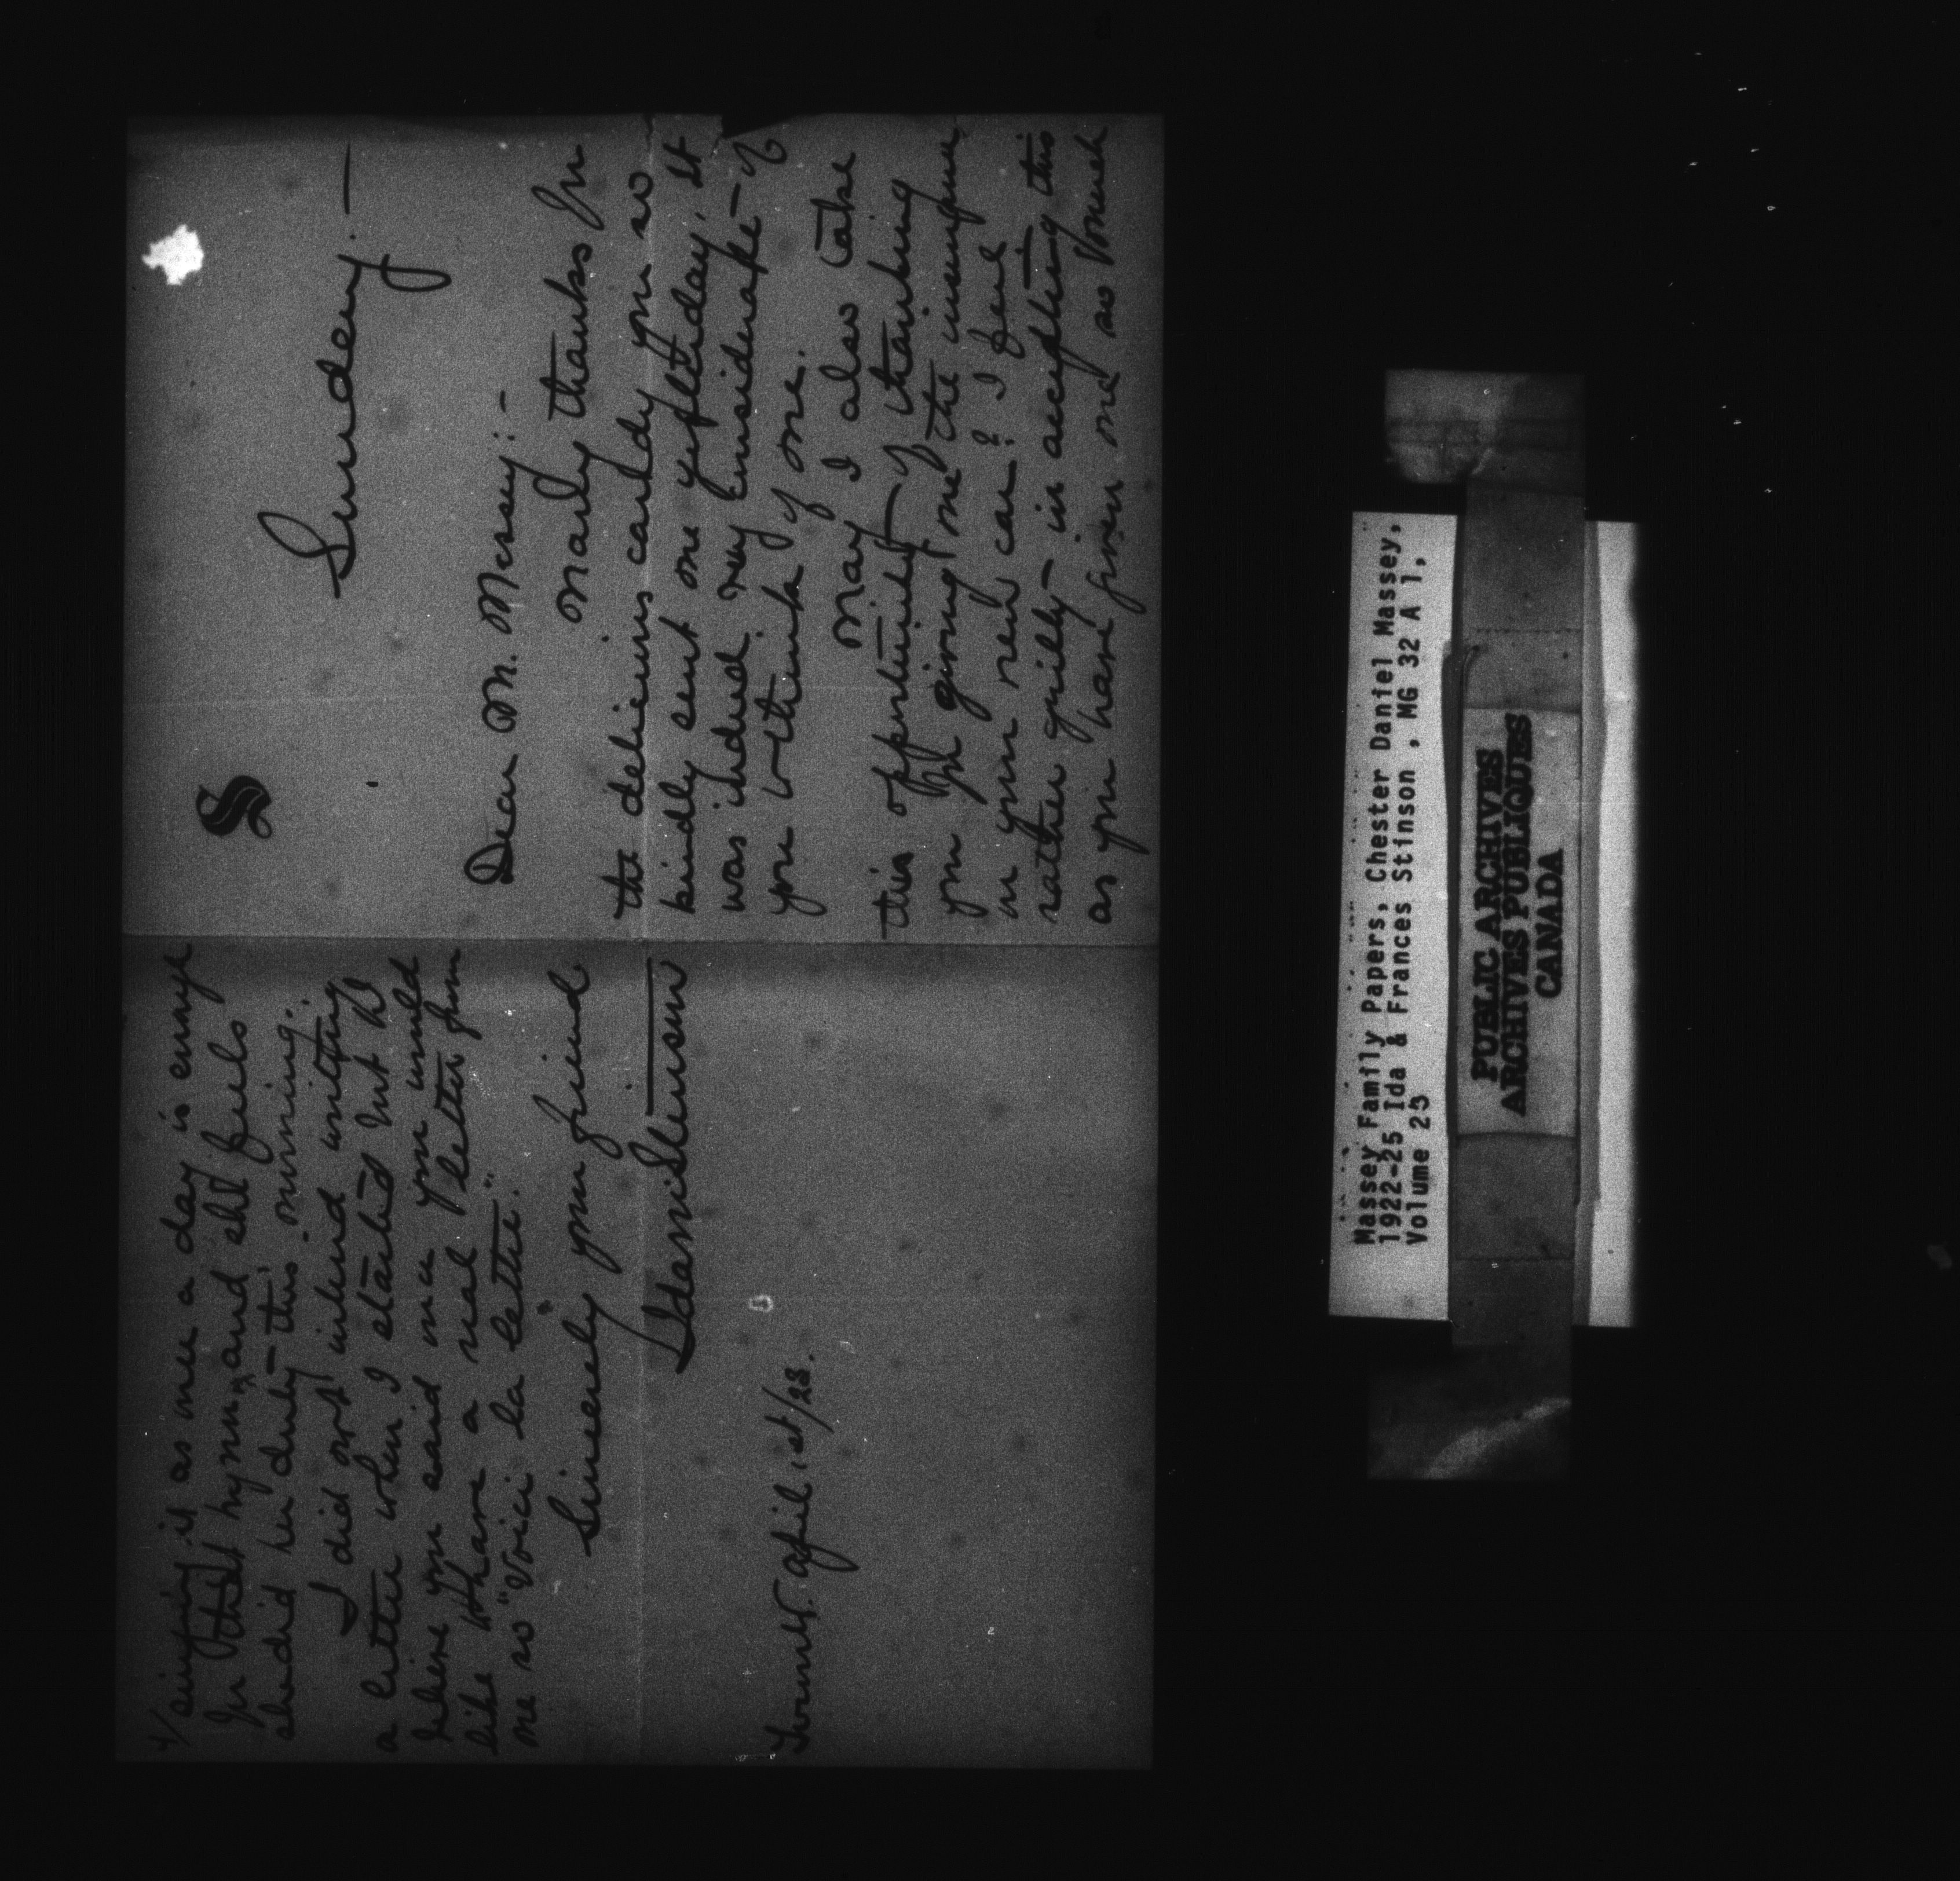 S
Sunday. —
Dear Mr. Massey: —
Many thanks for
the delicious candy you so
kindly sent me yesterday. It
was indeed very considerate of
you to think of me.
May I also take
this opportunity of thanking
you for giving me the
in your new car? I feel
rather guilty in accepting this
as you have given me so much
4/
singing it as once a day is enough
for that hymn, and she feels
she did her duty this morning.
I did not intend writing
a letter when I started but I
believe you said once you would
like to have a real letter from
me so "Voici la lettre."
Sincerely your friend
Ida M. Stinson
Toronto. April 1st/23.
Massey Family Papers, Chester Daniel Massey,
1922-25 Ida & Frances Stinson , MG 32 A 1,
Volume 25
PUBLIC ARCHIVES
ARCHIVES PUBLIQUES
CANADA